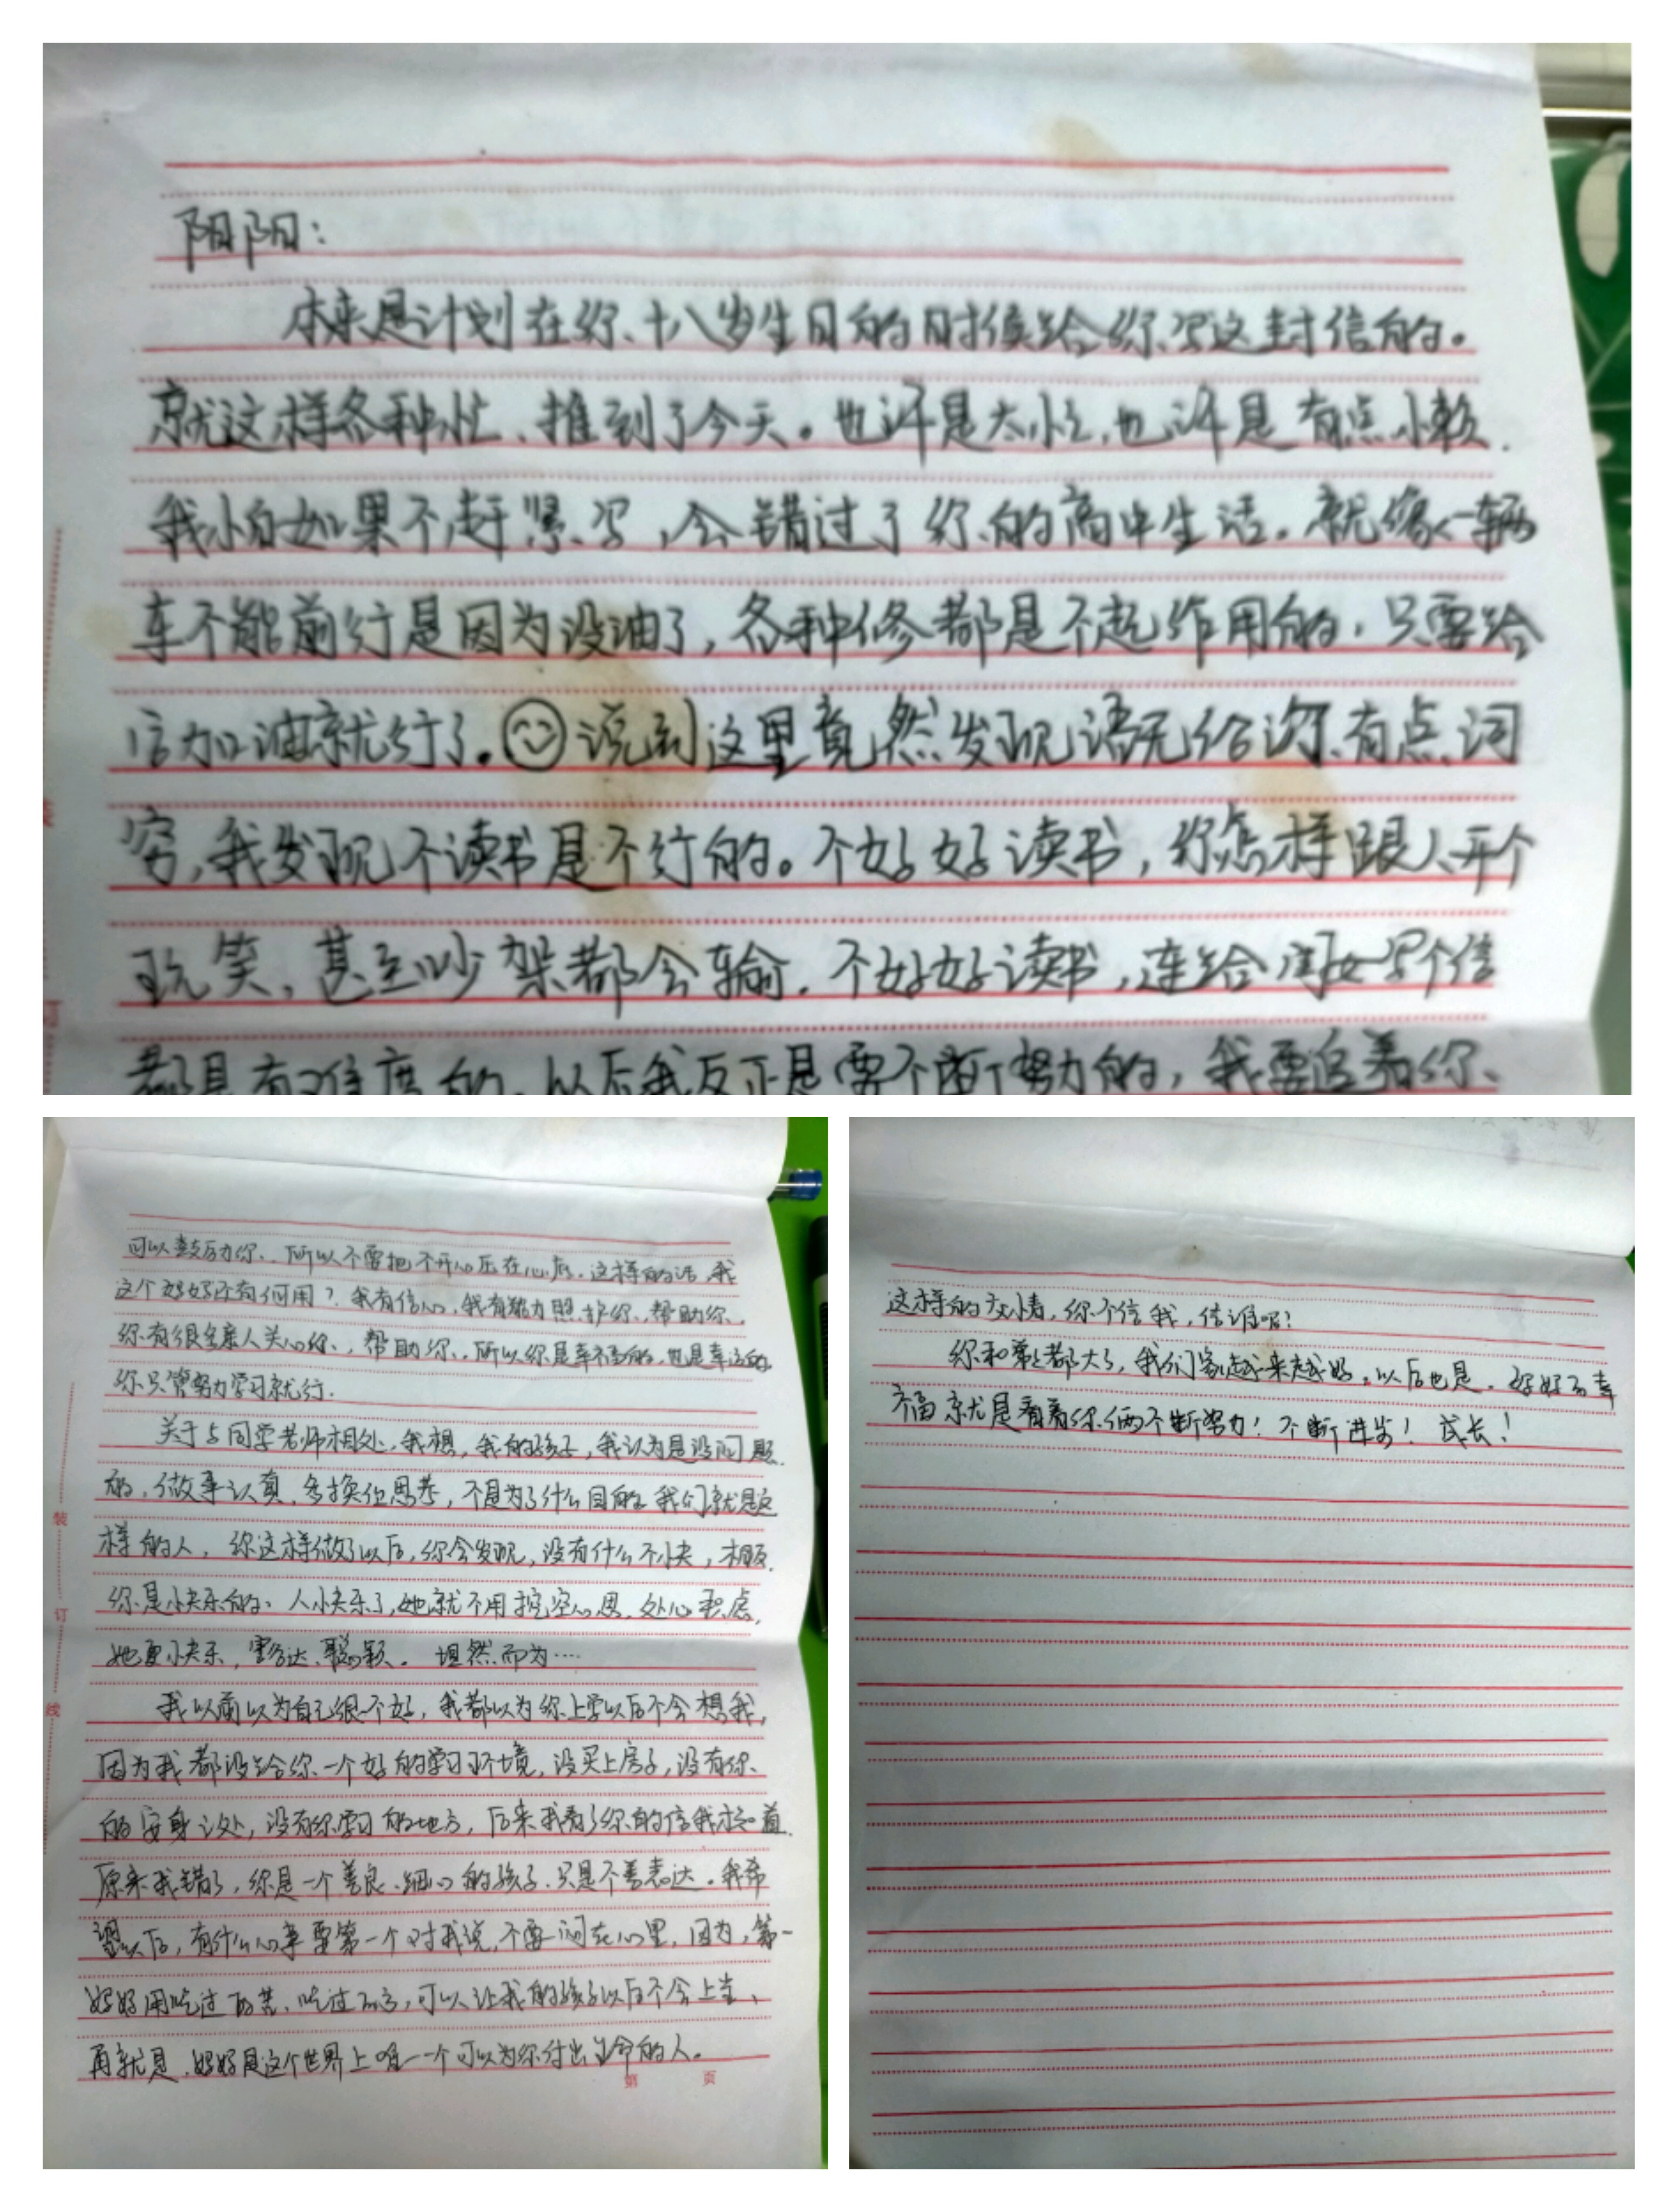 阳阳：
本来是计划在你十八岁生日的时候给你写这封信的。
就这样各种忙、推到了今天。也许是太忙，也许是有点小懒.
我怕如果不赶紧写，会错过了你的高中生活。就像一辆
车不能前行是因为没油了，各种修都是不起作用的，只要给
它加油就行了。说到这里竟然发现语无伦次、有点词
穷，我发现不读书是不行的。不好好读书，你怎样跟人开个
玩笑，甚至吵架都会输。不好好读书，连给闺女写个信
都是有难度的，以后我反正是要不断努力的，我要追着你、
可以鼓励你、所以不要把不开心压在心底。这样的话，我
这个妈妈还有何用？我有信心，我有能力照护你、帮助你、
你有很多亲人关心你、帮助你、所以你是幸福的，也是幸运的，
你只管努力学习就行.
关于与同学老师相处，我想，我的孩子，我认为是没问题
的，做事认真，多换位思考，不是为了什么目的，我们就是这
样的人，你这样做了以后，你会发现，没有什么不快，相反
你是快乐的、人快乐了，她就不用挖空心思、处心积虑，
她更快乐，豁达、聪颖。坦然而为……
我以前以为自己很不好，我都以为你上学以后不会想我，
因为我都没给你一个好的学习环境，没买上房子，没有你
的安身之处，没有你学习的地方，后来我看了你的信我才知道
原来我错了，你是一个善良、细心的孩子，只是不善表达。我希
望以后，有什么心事要第一个对我说，不要闷在心里，因为，第一
妈妈用吃过的苦、吃过的亏，可以让我的孩子以后不会上当、
再就是、妈妈是这个世界上唯一一个可以为你付出生命的人。
第 页
装
订
线
这样的交情，你不信我，信谁呢？
你和弟弟都大了，我们家越来越好。以后也是，妈妈的幸
福就是看着你俩不断努力！不断进步！成长！